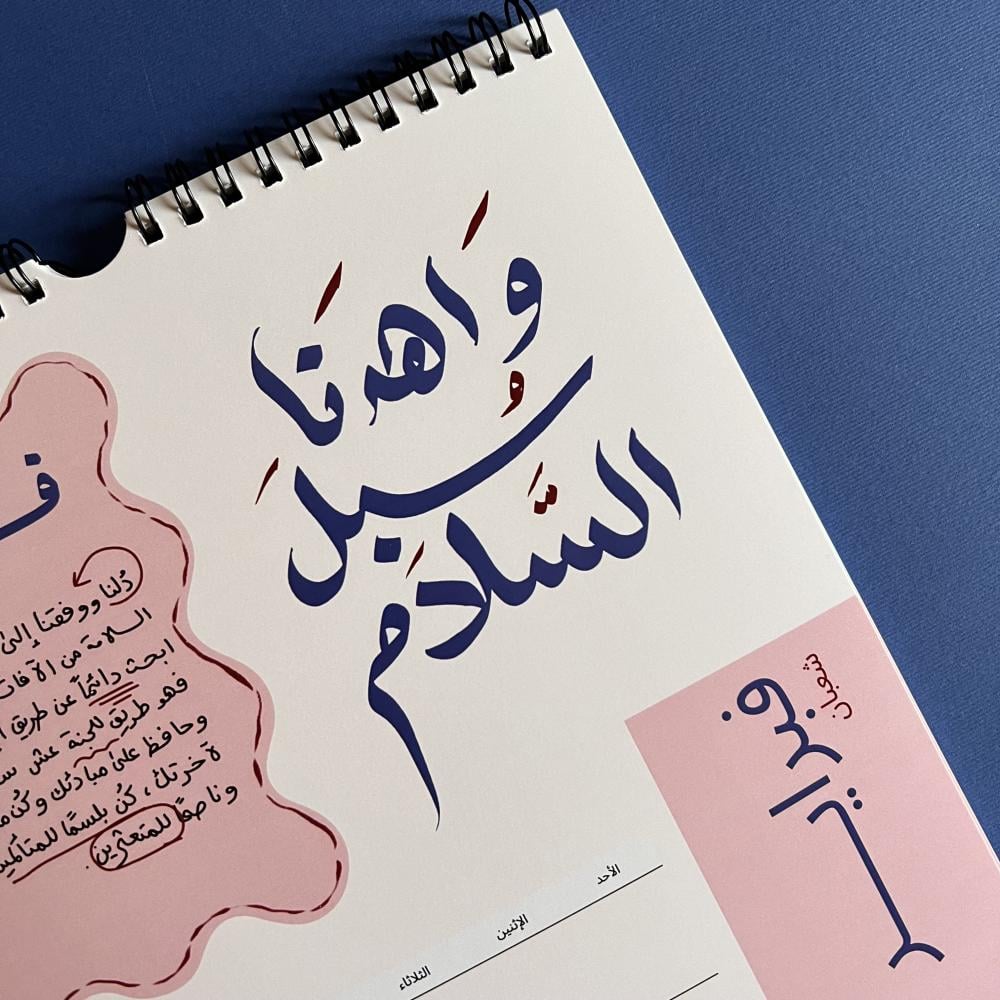 وَاهدنَا
سُبلَ
السّلاَم
فـ
دُلنا ووفقنا إلى
السلامة من الآفات
ابحث دائمًا عن طريق
فهو طريق للجنة عش
وحافظ على مبادئك وكُن
آخرتك، كُن بلسمًا للمتألمين
وناصحًا للمتعثرين.
فبراير
شعبان
الأحد
الإثنين
الثلاثاء